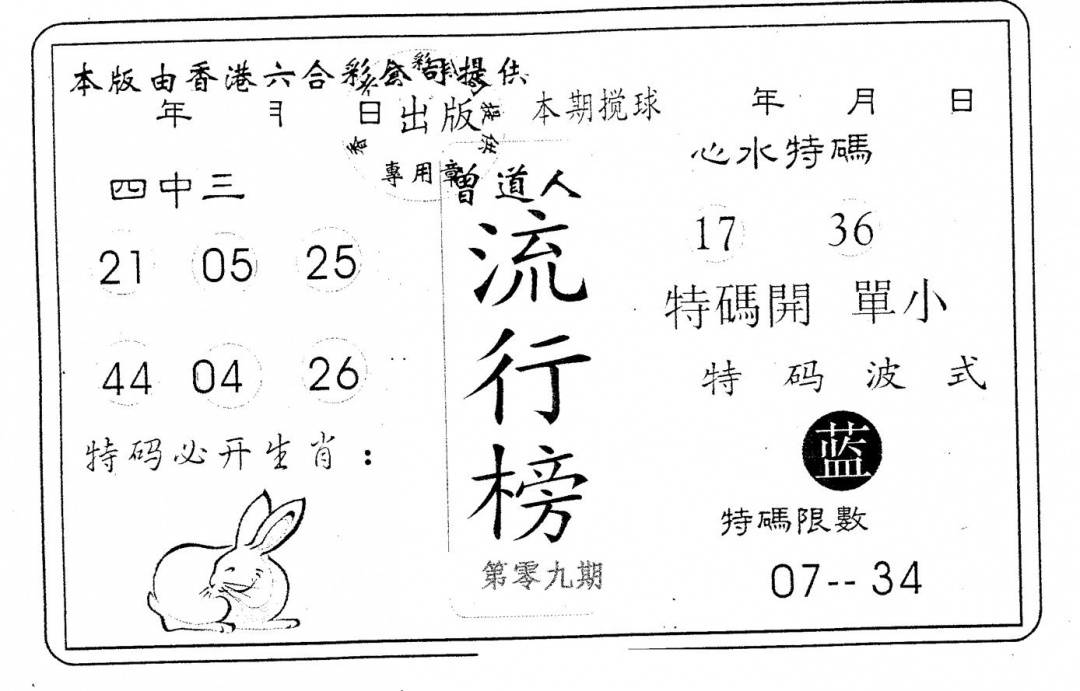 本版由香港六合彩公司提供
年 月 日出版 本期搅球 年 月 日
專用章
四中三
21 05 25
44 04 26
特码必开生肖：
曾道人
流行榜
第零九期
心水特碼
17 36
特碼開 單小
特码波式
蓝
特碼限數
07-- 34